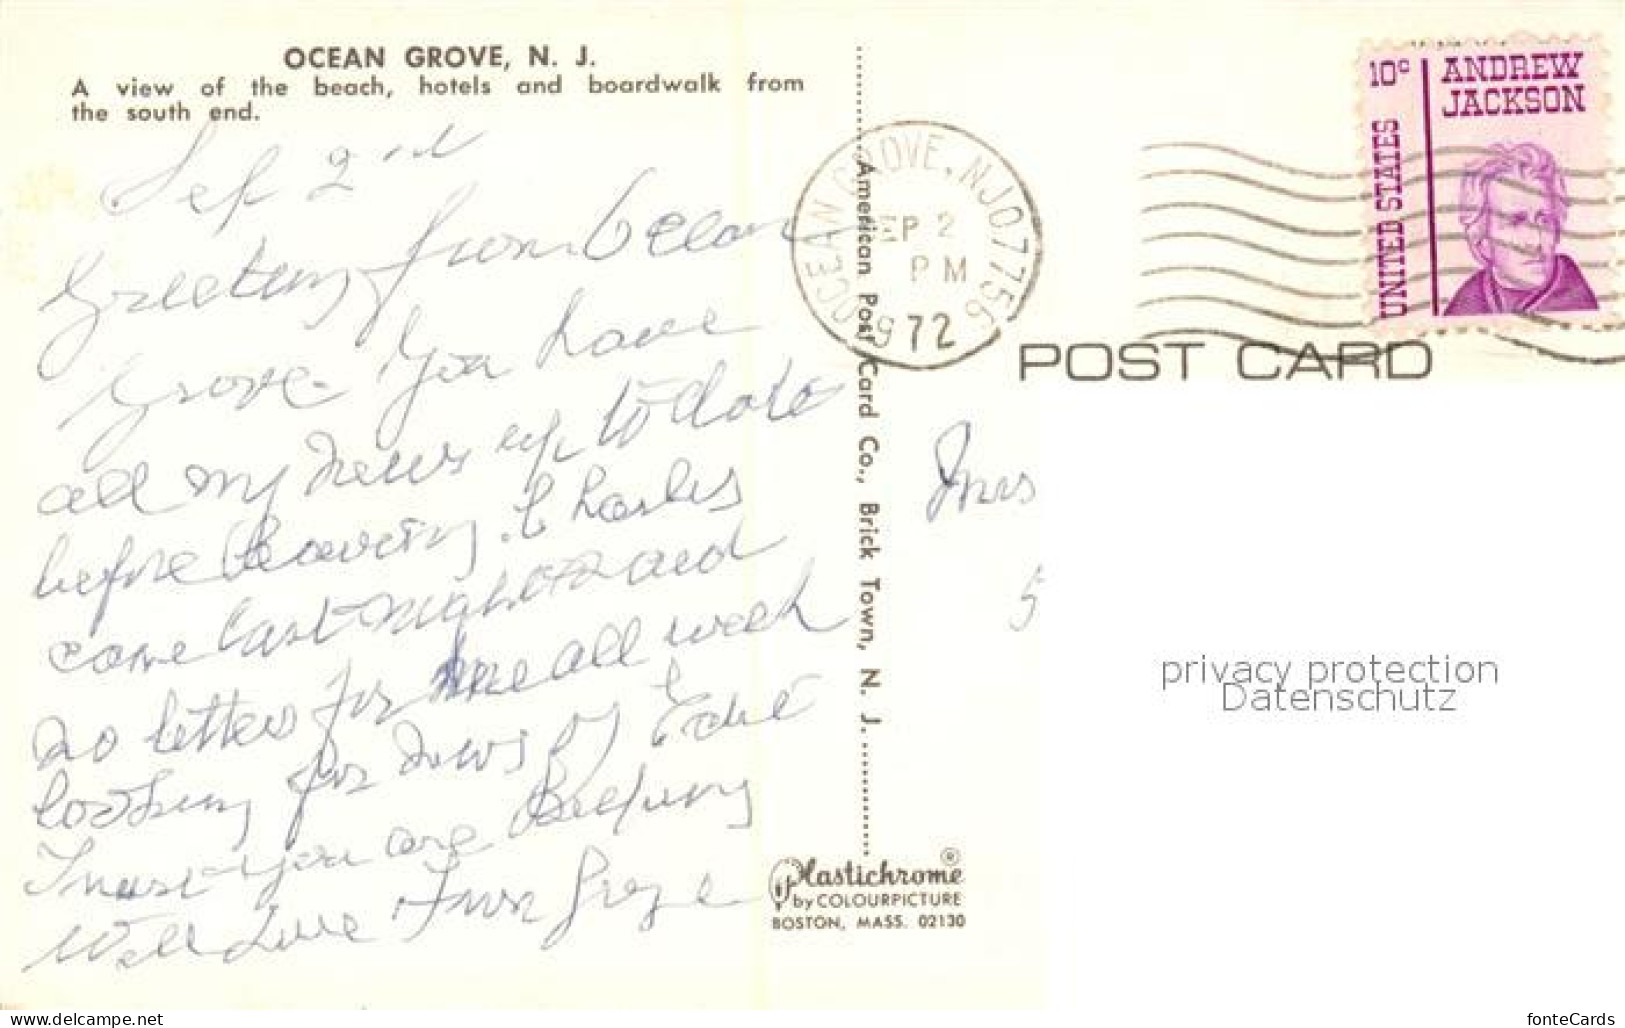 OCEAN GROVE, N. J.
A view of the beach, hotels and boardwalk from
the south end.
Sep 2nd
Greetings from Ocean
Grove You have
all my news up to date
before leaving. Charles
came last night and
no letters for me all week
looking for news of Edie
Trust you are
Well Love from
American Post Card Co., Brick Town, N. J.
OCEAN GROVE, NJ 07756
SEP 2
PM
1972
10c
ANDREW
JACKSON
UNITED STATES
POST CARD
Mrs
5
privacy protection
Datenschutz
Plastichrome®
by COLOURPICTURE
BOSTON, MASS. 02130
www.delcampe.net
fonteCards